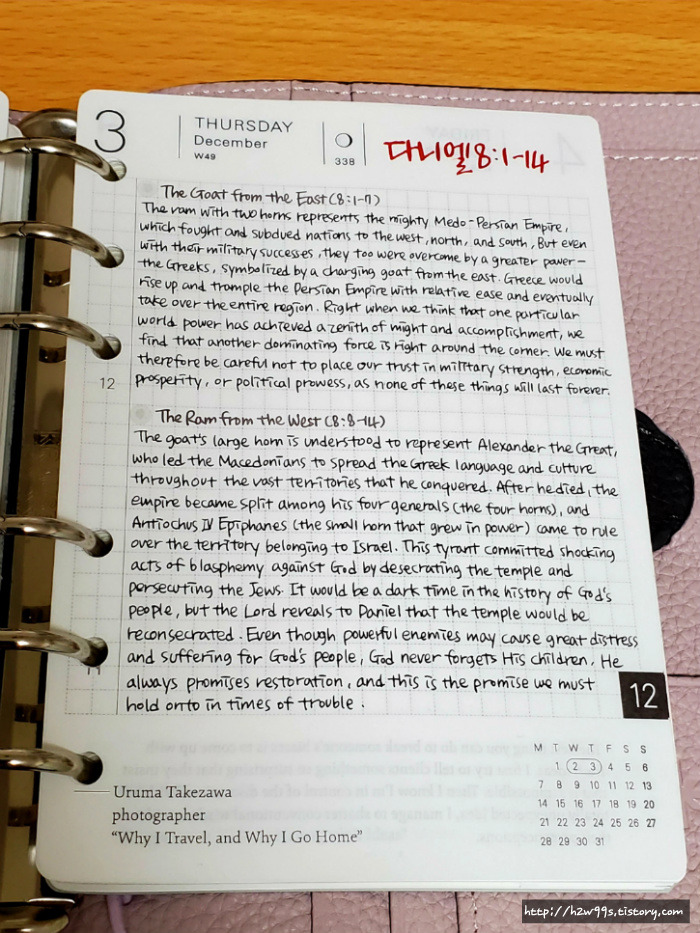 3
THURSDAY
December
W49
338
다니엘 8:1-14
The Goat from the East (8:1-7)
The ram with two horns represents the mighty Medo-Persian Empire,
which fought and subdued nations to the west, north, and south, But even
with their military successes, they too were overcome by a greater power-
the Greeks, symbolized by a charging goat from the east. Greece would
rise up and trample the Persian Empire with relative ease and eventually
take over the entire region. Right when we think that one particular
world power has achieved a zenith of might and accomplishment, we
find that another dominating force is right around the corner. We must
therefore be careful not to place our trust in military strength, economic
12 prosperity, or political prowess, as none of these things will last forever.
The Ram from the West (8:8-14)
The goat's large horn is understood to represent Alexander the Great,
who led the Macedonians to spread the Greek language and culture
throughout the vast territories that he conquered. After he died, the
empire became split among his four generals (the four horns), and
Antiochus IV Epiphanes (the small horn that grew in power) came to rule
over the territory belonging to Israel. This tyrant committed shocking
acts of blasphemy against God by desecrating the temple and
persecuting the Jews. It would be a dark time in the history of God's
people, but the Lord reveals to Daniel that the temple would be
reconsecrated. Even though powerful enemies may cause great distress
and suffering for God's people, God never forgets His children. He
always promises restoration, and this is the promise we must
hold onto in times of trouble.
12
M T W T F S S
1 2 3 4 5 6
7 8 9 10 11 12 13
14 15 16 17 18 19 20
21 22 23 24 25 26 27
28 29 30 31
Uruma Takezawa
photographer
"Why I Travel, and Why I Go Home"
http://h2w99s.tistory.com